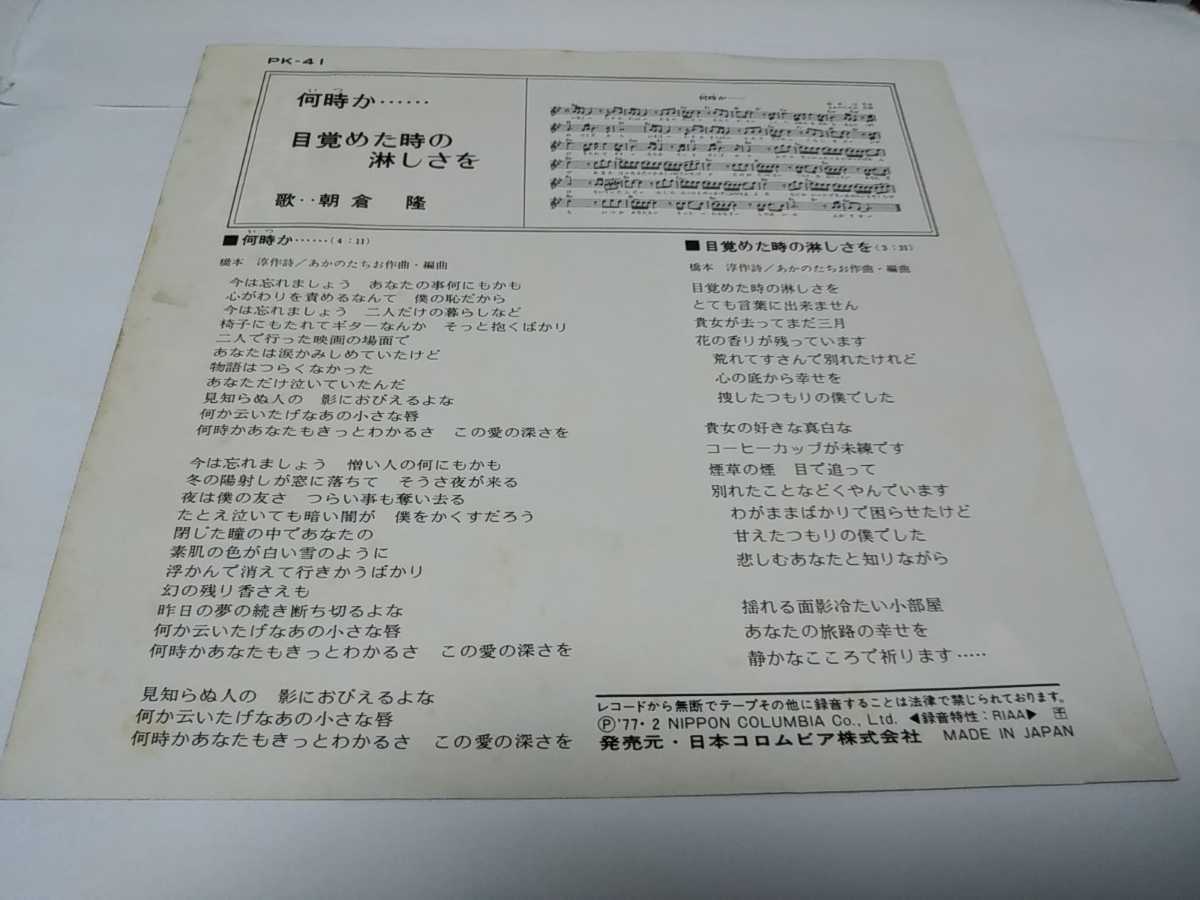 PK-41
何時か……
いつ
目覚めた時の
淋しさを
歌‥朝倉 隆
何時か──
■何時か……(4：11)
いつ
橋本 淳作詩／あかのたちお作曲・編曲
今は忘れましょう あなたの事何にもかも
心がわりを責めるなんて 僕の恥だから
今は忘れましょう 二人だけの暮らしなど
椅子にもたれてギターなんか そっと抱くばかり
二人で行った映画の場面で
あなたは涙かみしめていたけど
物語はつらくなかった
あなただけ泣いていたんだ
見知らぬ人の 影におびえるよな
何か云いたげなあの小さな唇
何時かあなたもきっとわかるさ この愛の深さを
今は忘れましょう 憎い人の何にもかも
冬の陽射しが窓に落ちて そうさ夜が来る
夜は僕の友さ つらい事も奪い去る
たとえ泣いても暗い闇が 僕をかくすだろう
閉じた瞳の中であなたの
素肌の色が白い雪のように
浮かんで消えて行きかうばかり
幻の残り香さえも
昨日の夢の続き断ち切るよな
何か云いたげなあの小さな唇
何時かあなたもきっとわかるさ この愛の深さを
見知らぬ人の 影におびえるよな
何か云いたげなあの小さな唇
何時かあなたもきっとわかるさ この愛の深さを
■目覚めた時の淋しさを(3：31)
橋本 淳作詩／あかのたちお作曲・編曲
目覚めた時の淋しさを
とても言葉に出来ません
貴女が去ってまだ三月
花の香りが残っています
荒れてすさんで別れたけれど
心の底から幸せを
捜したつもりの僕でした
貴女の好きな真白な
コーヒーカップが未練です
煙草の煙 目で追って
別れたことなどくやんでいます
わがままばかりで困らせたけど
甘えたつもりの僕でした
悲しむあなたと知りながら
揺れる面影冷たい小部屋
あなたの旅路の幸せを
静かなこころで祈ります‥‥‥
レコードから無断でテープその他に録音することは法律で禁じられております。
Ⓟ'77・2 NIPPON COLUMBIA Co., Ltd. ◀録音特性：RIAA▶
発売元・日本コロムビア株式会社 MADE IN JAPAN